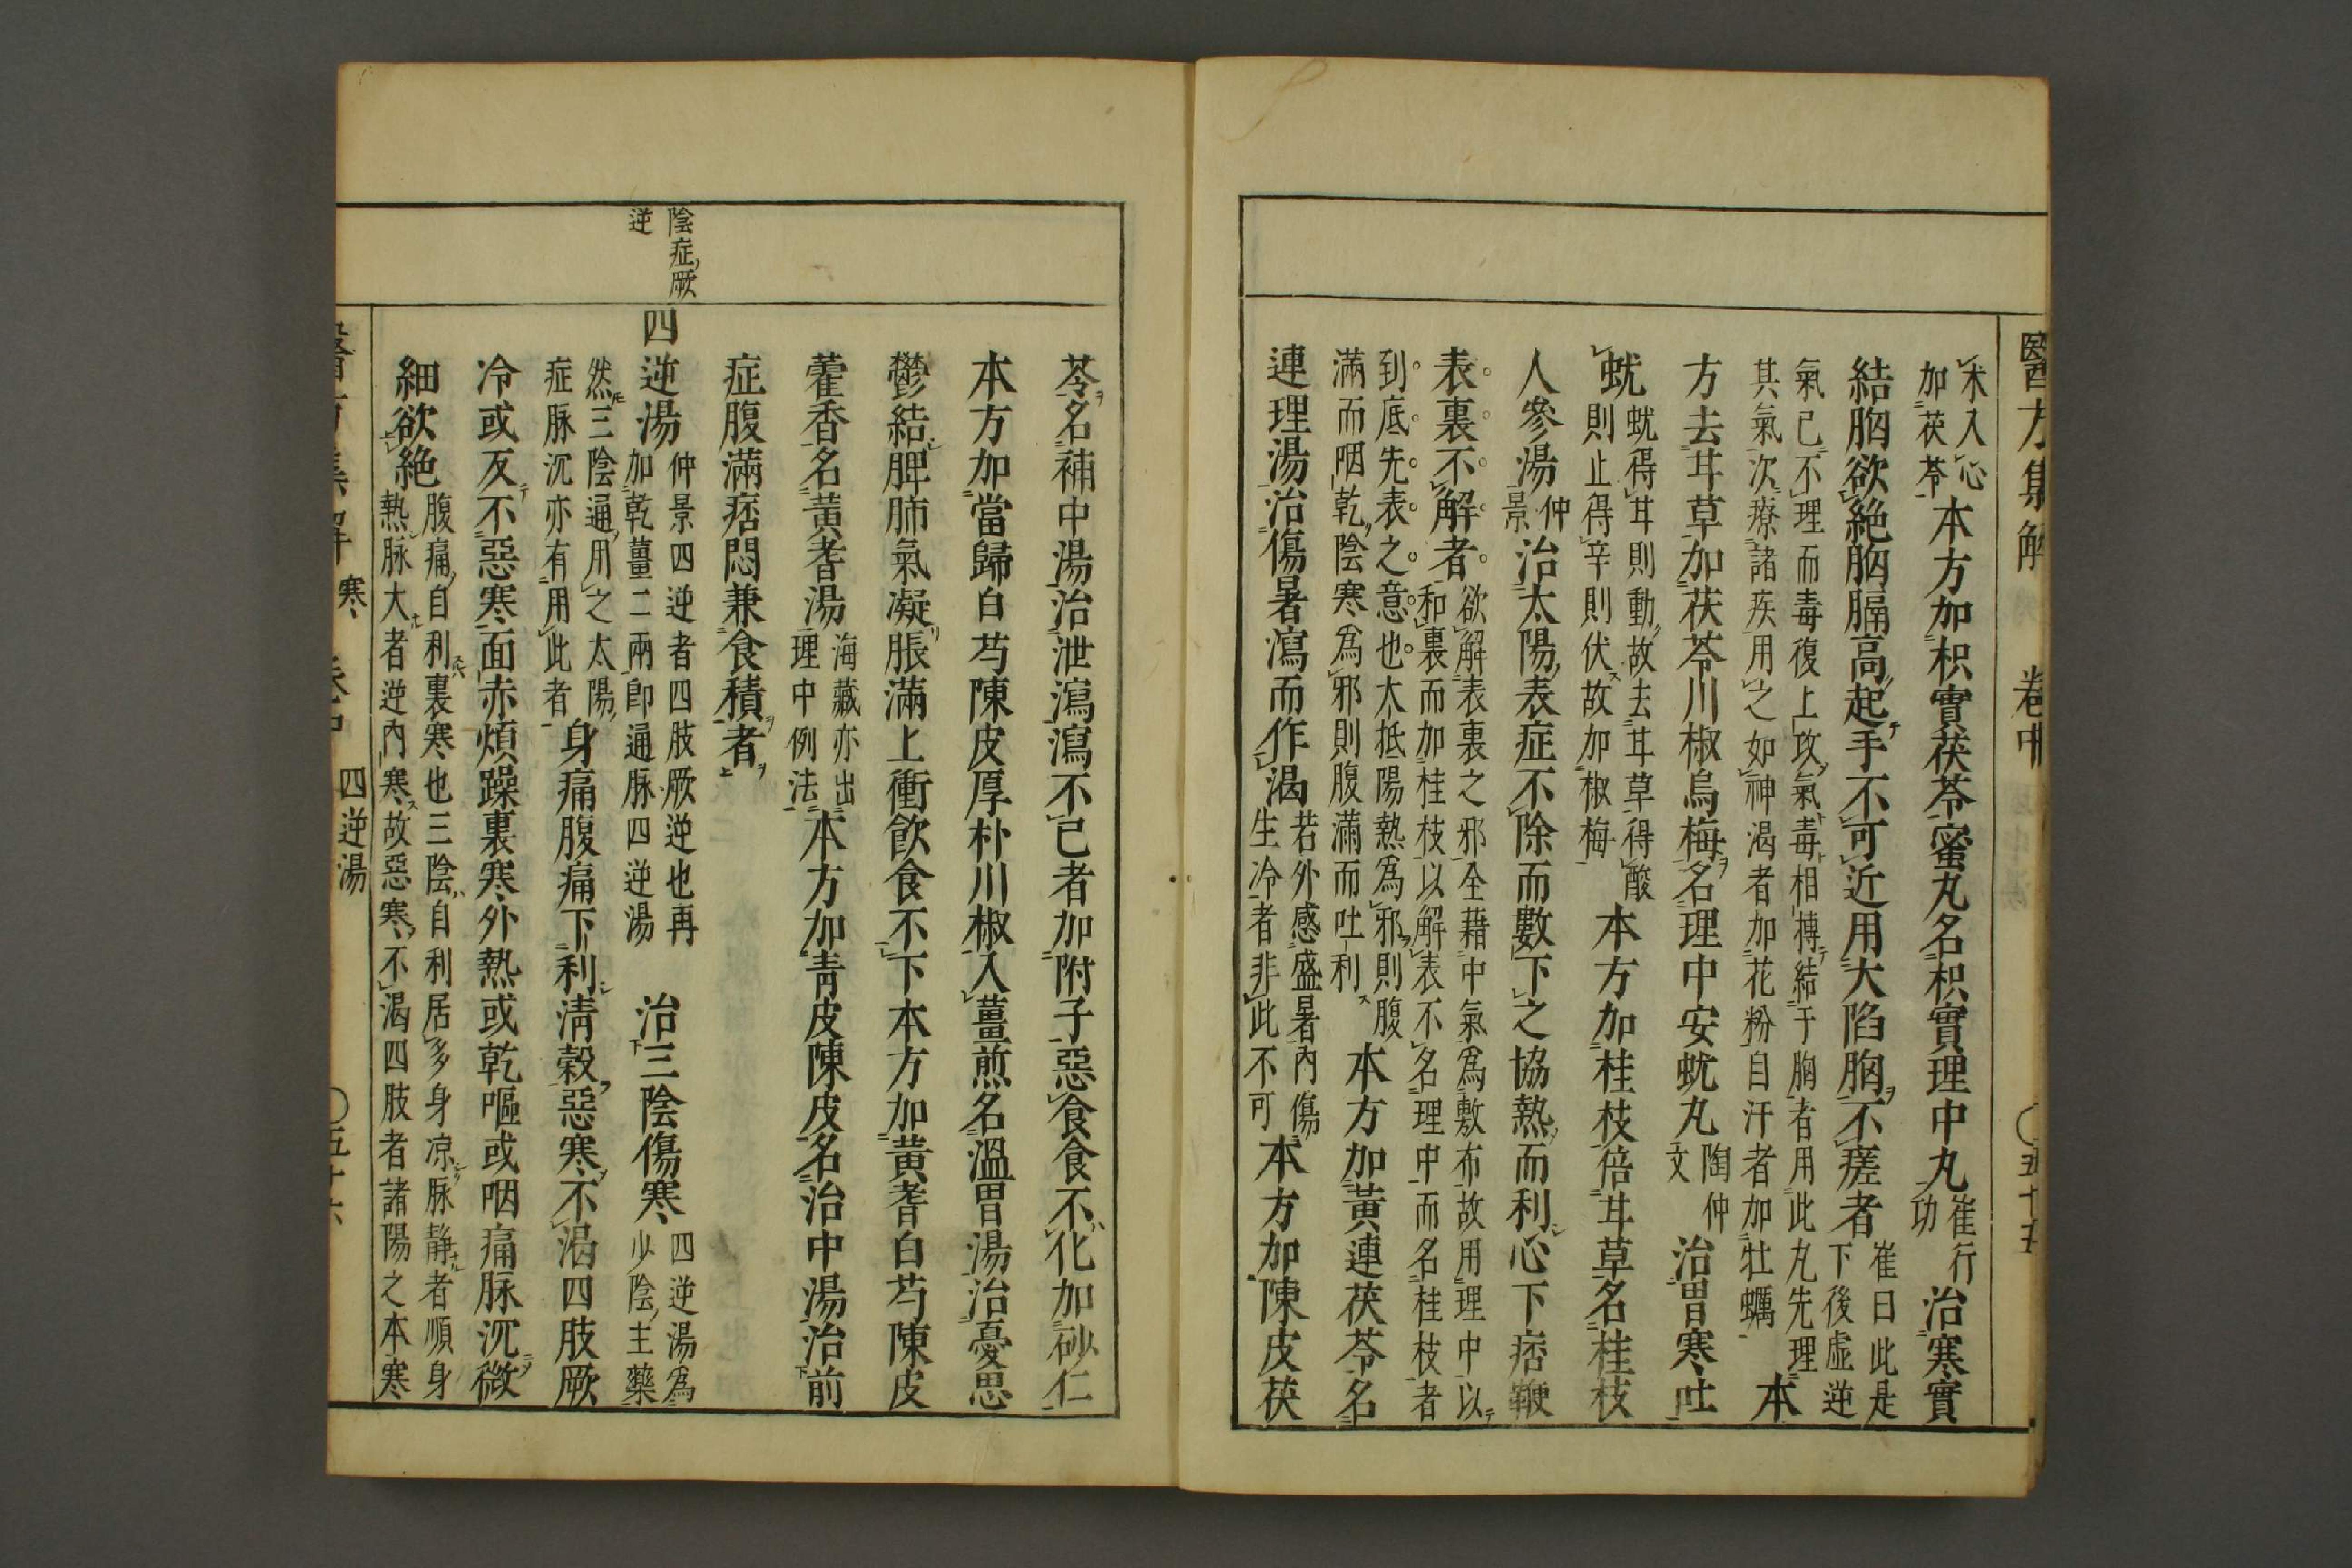 醫方集解 卷中 〇五十五
未入心加茯苓本方加枳實茯苓蜜丸名枳實理中丸崔行功治寒實
結胸欲絶胸膈高起手不可近用大陷胸不瘥者崔曰此是下後虛逆
氣已不理而毒復上攻氣毒相搏結于胸者用此丸先理其氣次療諸疾用之如神渴者加花粉自汗者加牡蠣本
方去甘草加茯苓川椒烏梅名理中安蚘丸陶仲文治胃寒吐
蚘蚘得甘則動故去甘草得酸則止得辛則伏故加椒梅本方加桂枝倍甘草名桂枝
人參湯仲景治太陽表症不除而數下之協熱而利心下痞鞕
表裏不解者欲解表裏之邪全藉中氣爲敷布故用理中以和裏而加桂枝以解表不名理中而名桂枝者
到底先表之意也大抵陽熱爲邪則腹滿而咽乾陰寒爲邪則腹滿而吐利本方加黃連茯苓名
連理湯治傷暑瀉而作渴若外感盛暑內傷生冷者非此不可本方加陳皮茯
苓名補中湯治泄瀉瀉不已者加附子惡食食不化加砂仁
本方加當歸白芍陳皮厚朴川椒入薑煎名溫胃湯治憂思
鬱結脾肺氣凝脹滿上衝飲食不下本方加黃耆白芍陳皮
藿香名黃耆湯海藏亦出理中例法本方加青皮陳皮名治中湯治前
症腹滿痞悶兼食積者
陰症厥逆
四逆湯仲景四逆者四肢厥逆也再加乾薑二兩卽通脉四逆湯 治三陰傷寒四逆湯爲少陰主藥
然三陰通用之太陽症脉沉亦有用此者身痛腹痛下利清穀惡寒不渴四肢厥
冷或反不惡寒面赤煩躁裏寒外熱或乾嘔或咽痛脉沉微
細欲絶腹痛自利裏寒也三陰自利居多身凉脉靜者順身熱脉大者逆內寒故惡寒不渴四肢者諸陽之本寒
醫方集解 寒 卷中 四逆湯 〇五十六